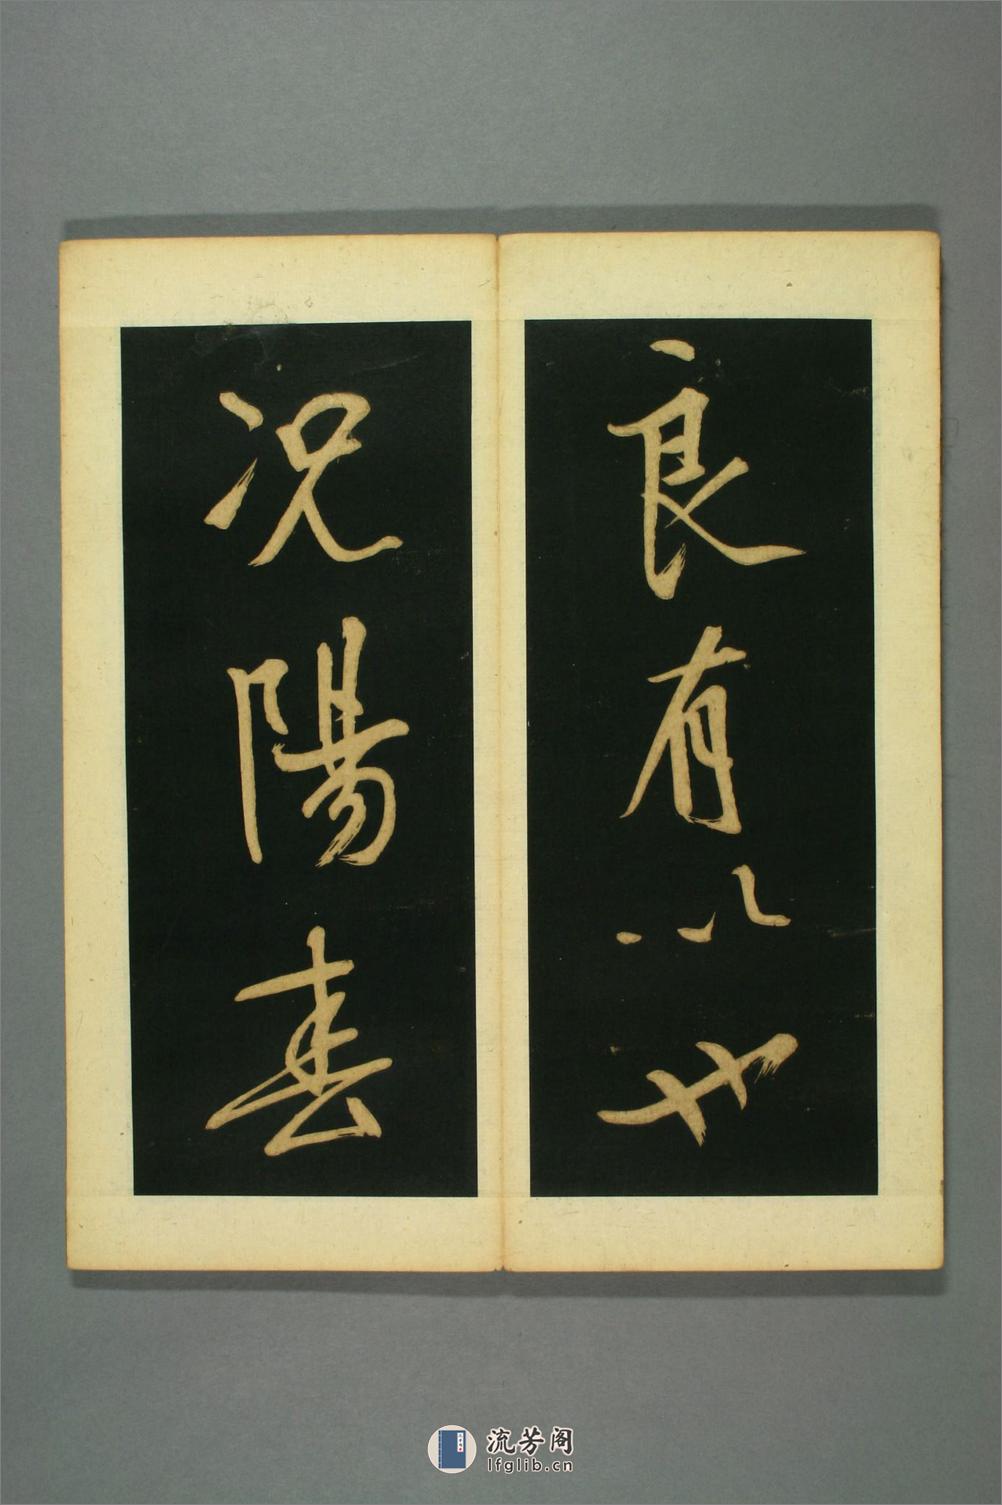 良有以也
况陽春
流芳阁
lfglib.cn